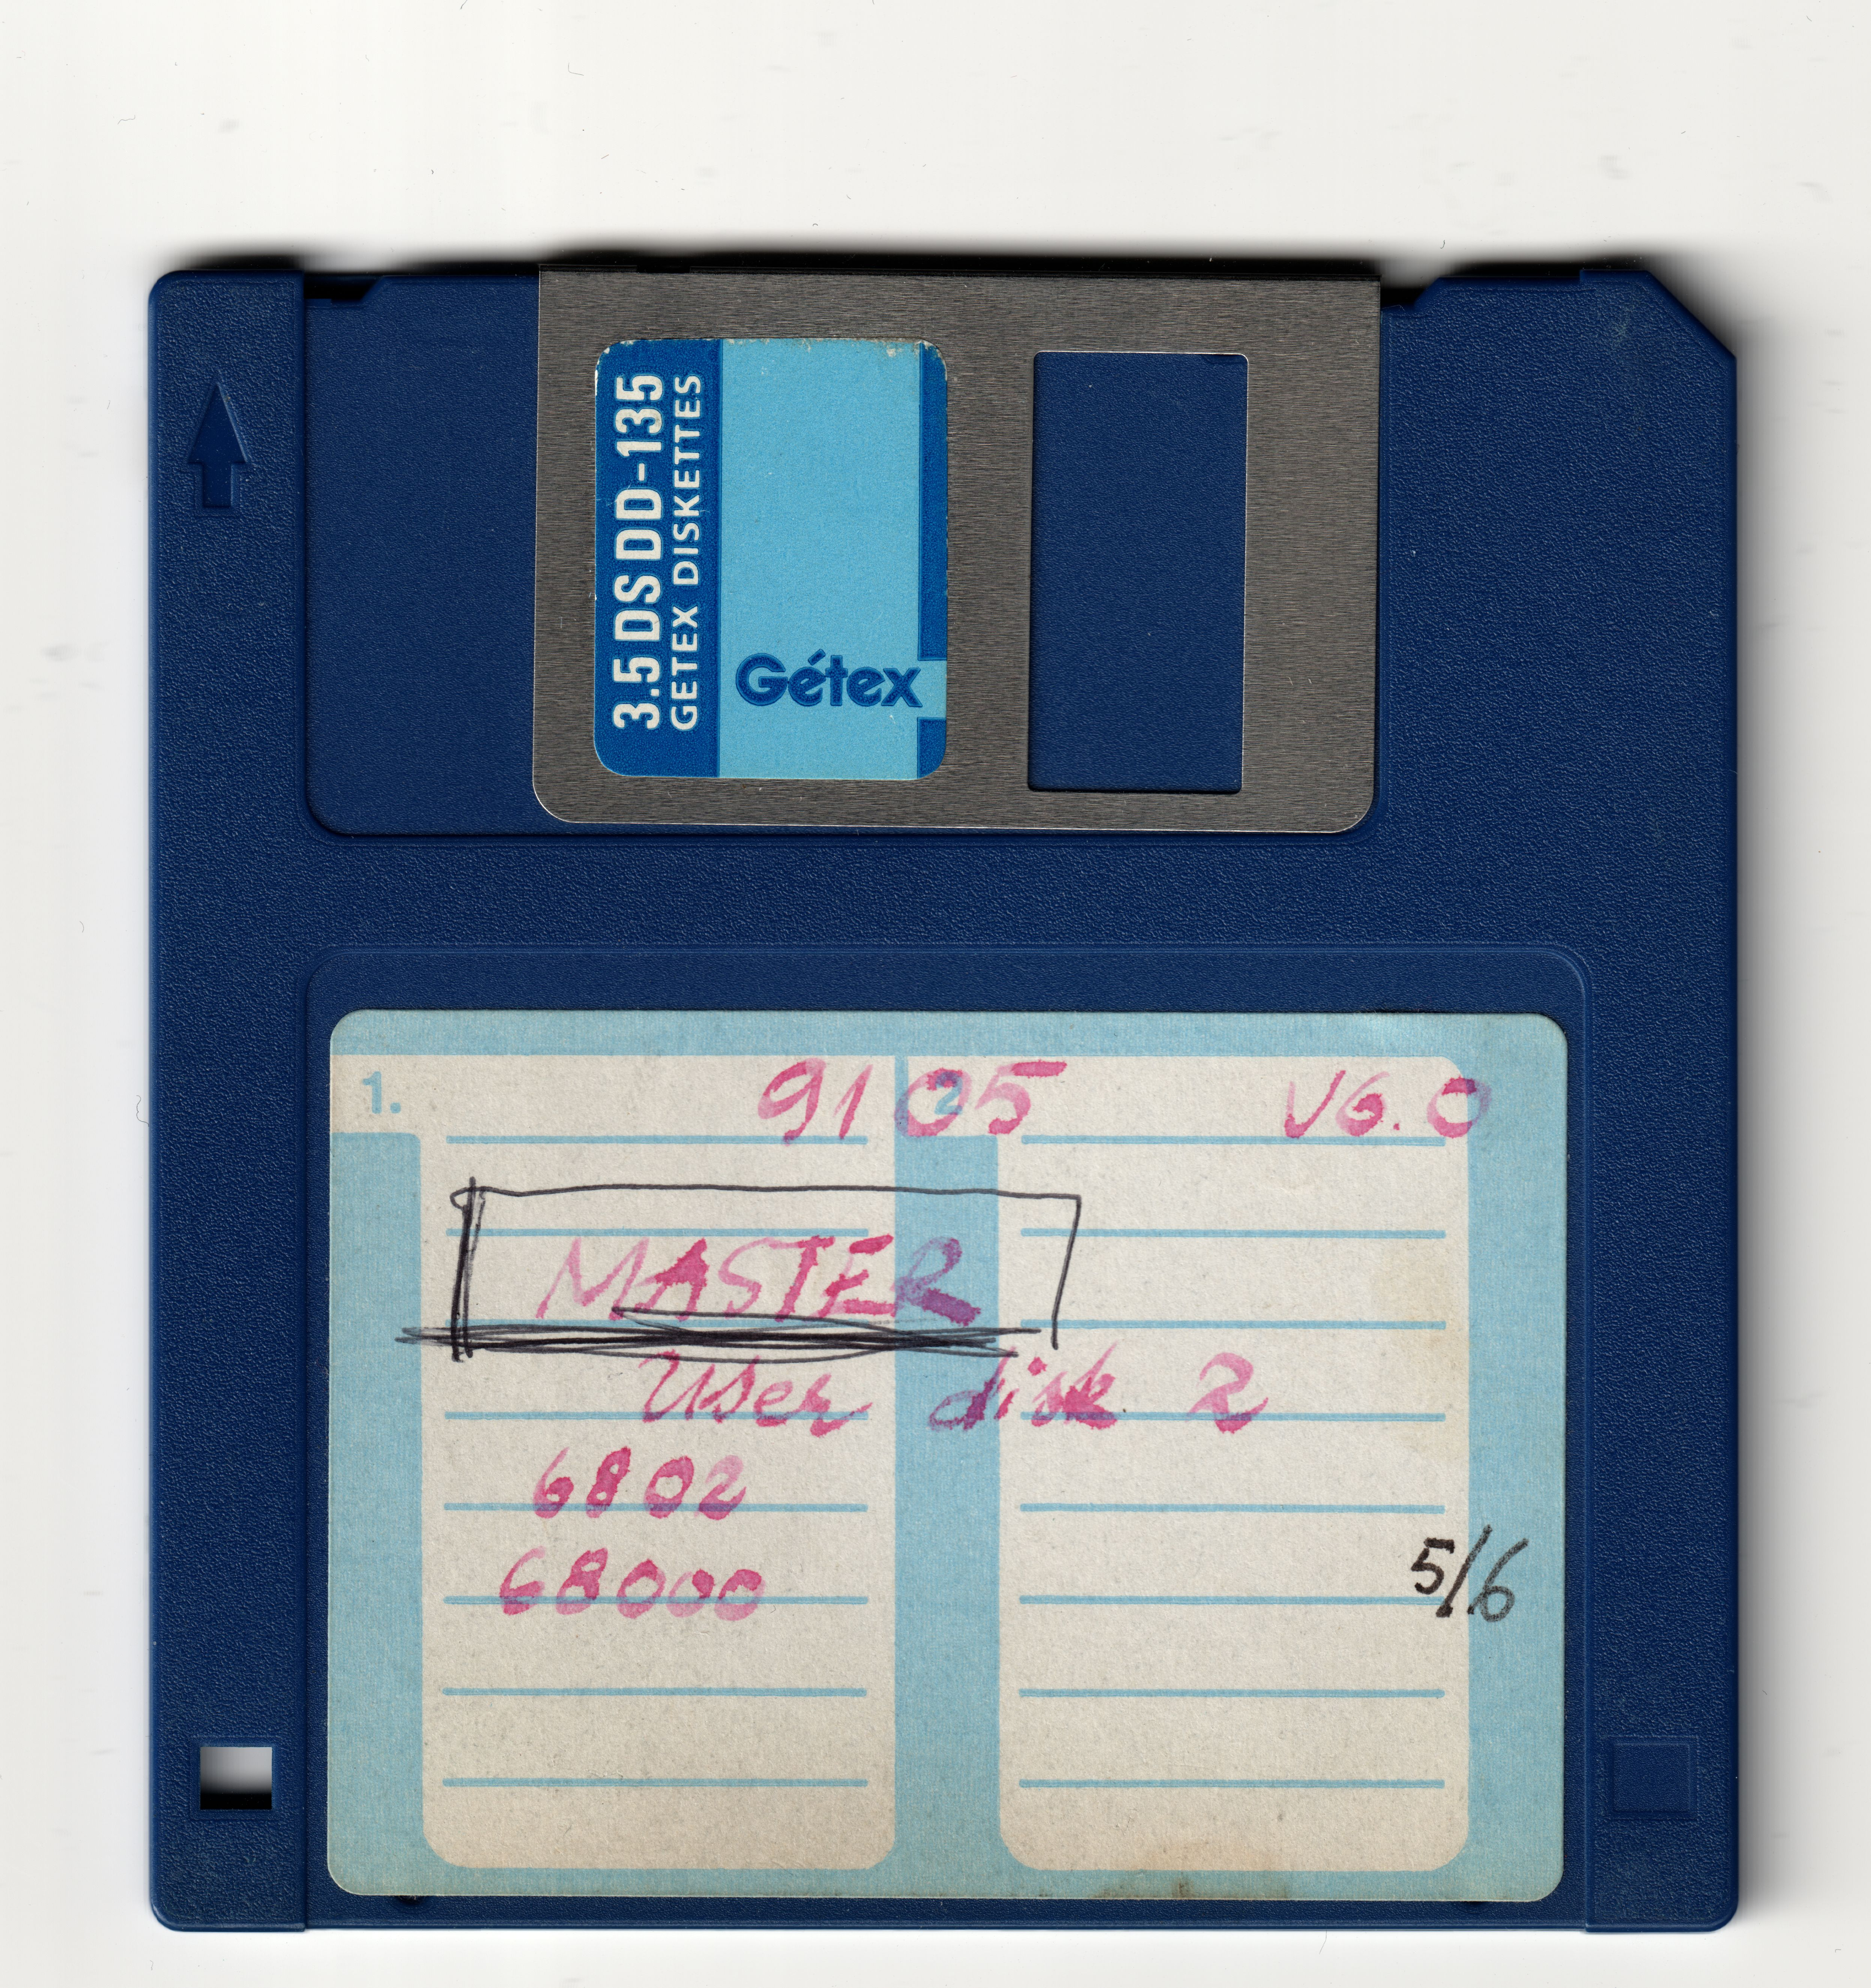 3.5 DS DD-135
GETEX DISKETTES
Gétex
1.
2
9105 V6.0
MASTER
User disk 2
6802
68000
5/6